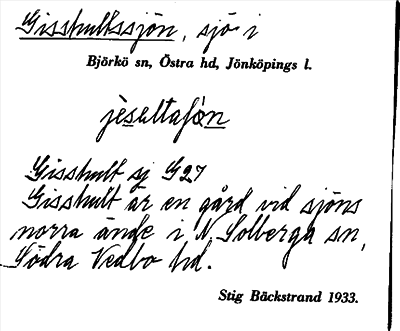 Gisshultssjön, sjö i
Björkö sn, Östra hd, Jönköpings l.
Gisshult sj G27
Gisshult är en gård vid sjöns
norra ände i N. Solberga sn,
Södra Vedbo hd.
Stig Bäckstrand 1933.